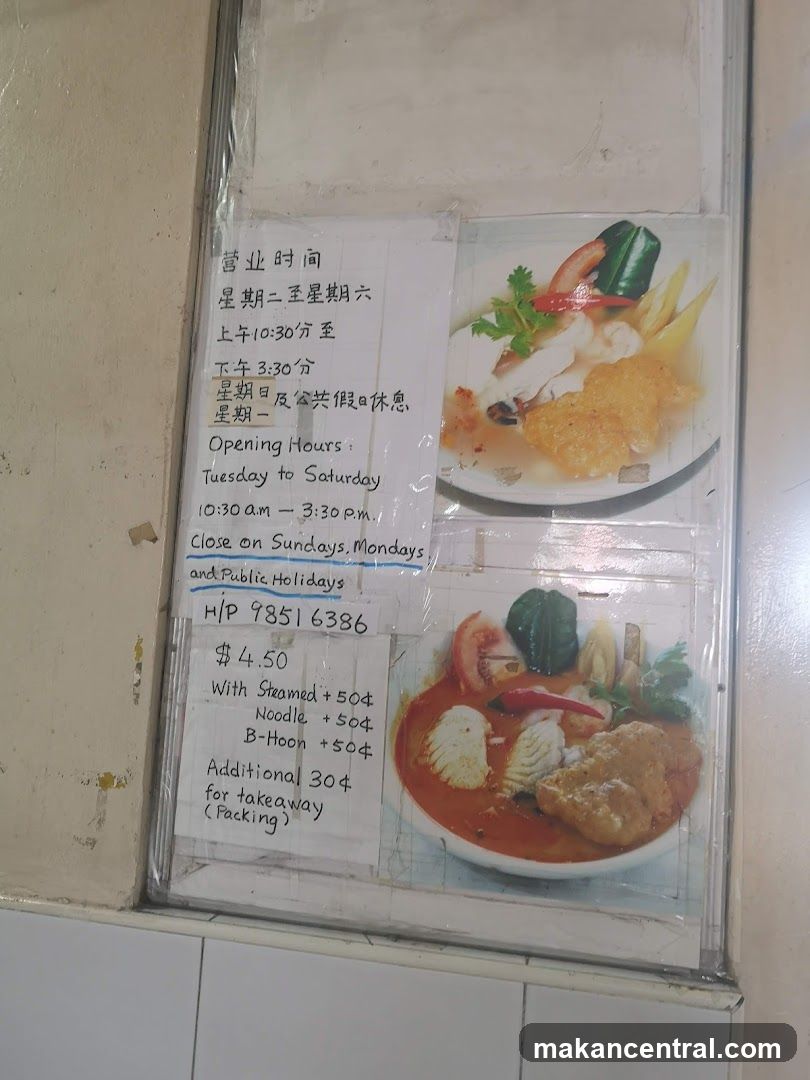 营业时间
星期二至星期六
上午10:30分至
下午3:30分
星期日
星期一 及公共假日休息
Opening Hours :
Tuesday to Saturday
10:30 a.m — 3:30 p.m.
Close on Sundays, Mondays
and Public Holidays
H/P 9851 6386
$ 4.50
With Steamed + 50¢
Noodle + 50¢
B-Hoon + 50¢
Additional 30¢
for takeaway
(Packing)
makancentral.com